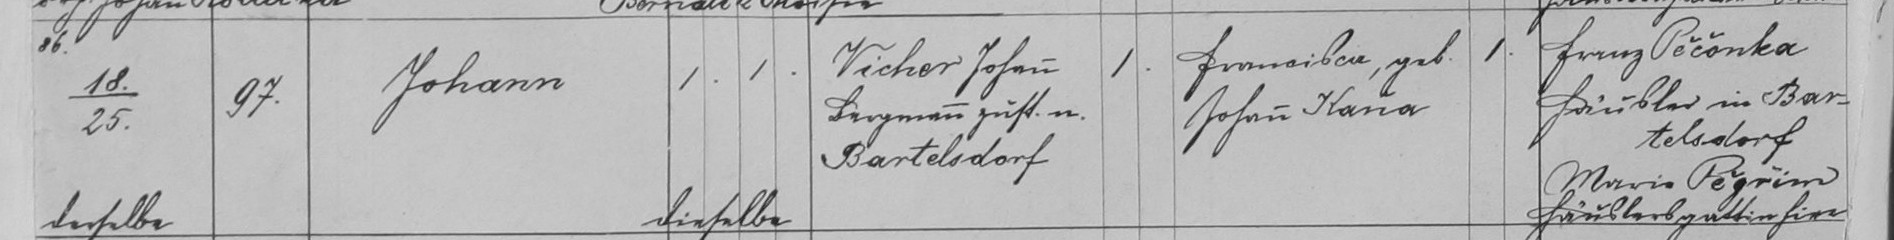 86.
18.
25.
97.
Johann
1. 1.
Vicher Johann
Bergmann zust. n.
Bartelsdorf
1.
Francisca, geb.
Johann Kaňa
1.
Franz Pěčonka
Häusler in Bar-
telsdorf
Marie Pegřim
Häuslersgattin hier
derselbe
dieselbe